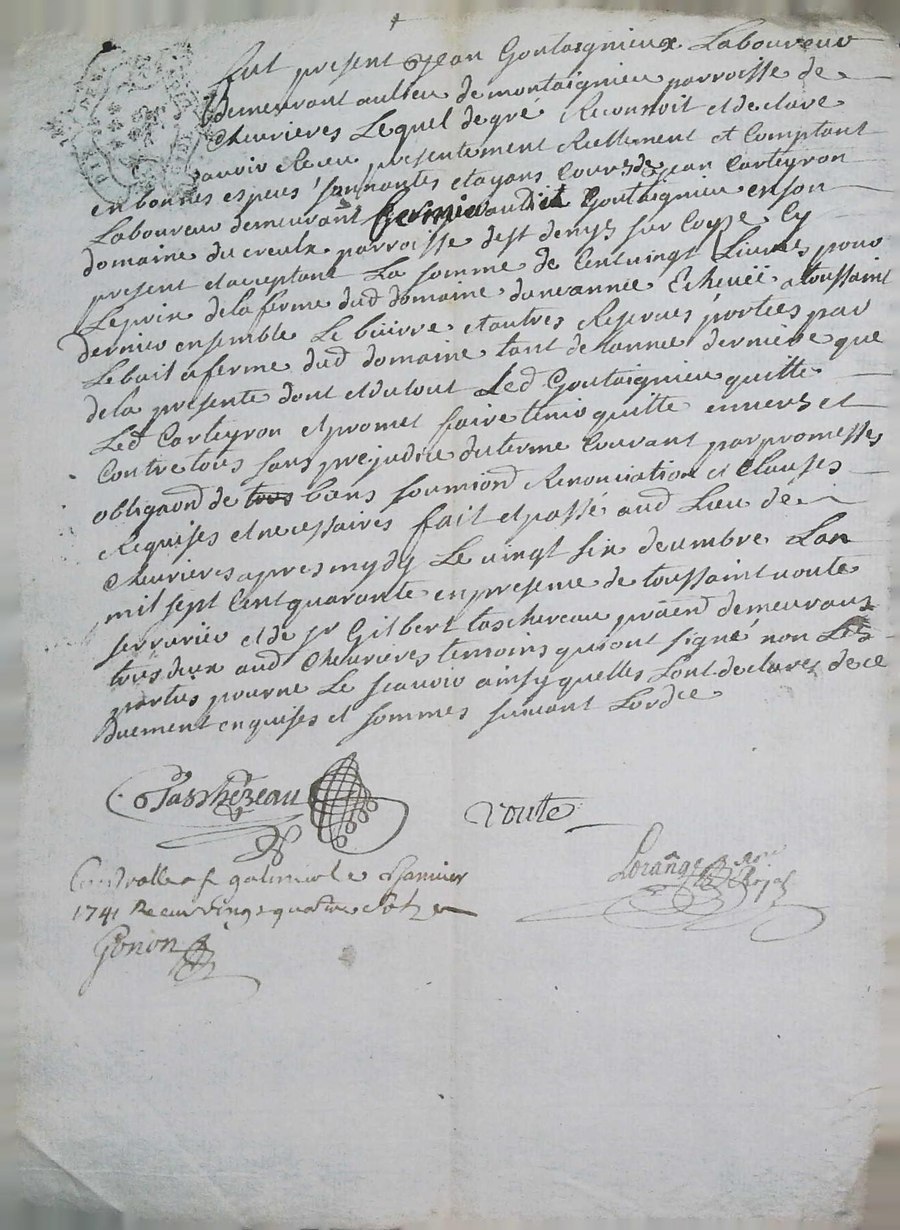 fut present Jean Goutaignieux Laboureur
demeurant au lieu de montaignieu parroisse de
Cheurieres Lequel de gré Reconnoit et declare
auoir Receu presentement Reellement et Comptant
en bonnes especes sonnantes et ayans Cours de Jean Carteyron
Laboureur demeurant fermier audit Goutaignieu en son
domaine du creulx parroisse de st denys sur Coyse Cy
present et aceptant La somme de Cent uingt Liures pour
Le prix de la ferme dud domaine dune annee Echeuë a toussaint
dernier ensemble Le buirre et autres Reserues portées par
Le bail a ferme dud domaine tant de Lannee derniere que
de la presente dont et du tout Led Goutaignieu quitte
Led Carteyron et promet faire tenir quitte enuers et
Contre tous sans prejudice du terme Courant par promesses
obligaond de tous biens soumiond Renonciation et Clauses
Requises et necessaires fait et passé aud Lieu de
Cheurieres apres mydy Le uingt six decembre Lan
mil sept Cent quarante en presence de toussaint uoute
serrurier et de sr Gilbert taschereau praend demeurans
tous deux aud Cheurieres temoins qui ont signé non Les
parties pour ne Le scauoir ainsy quelles Lont declare de ce
duement enquises et sommes suiuant Lordce
Taschezeau
voute
Lorange Nore Royal
Controllé a st galmier le Janvier
1741 Receu vingt quatre sols
Gonon